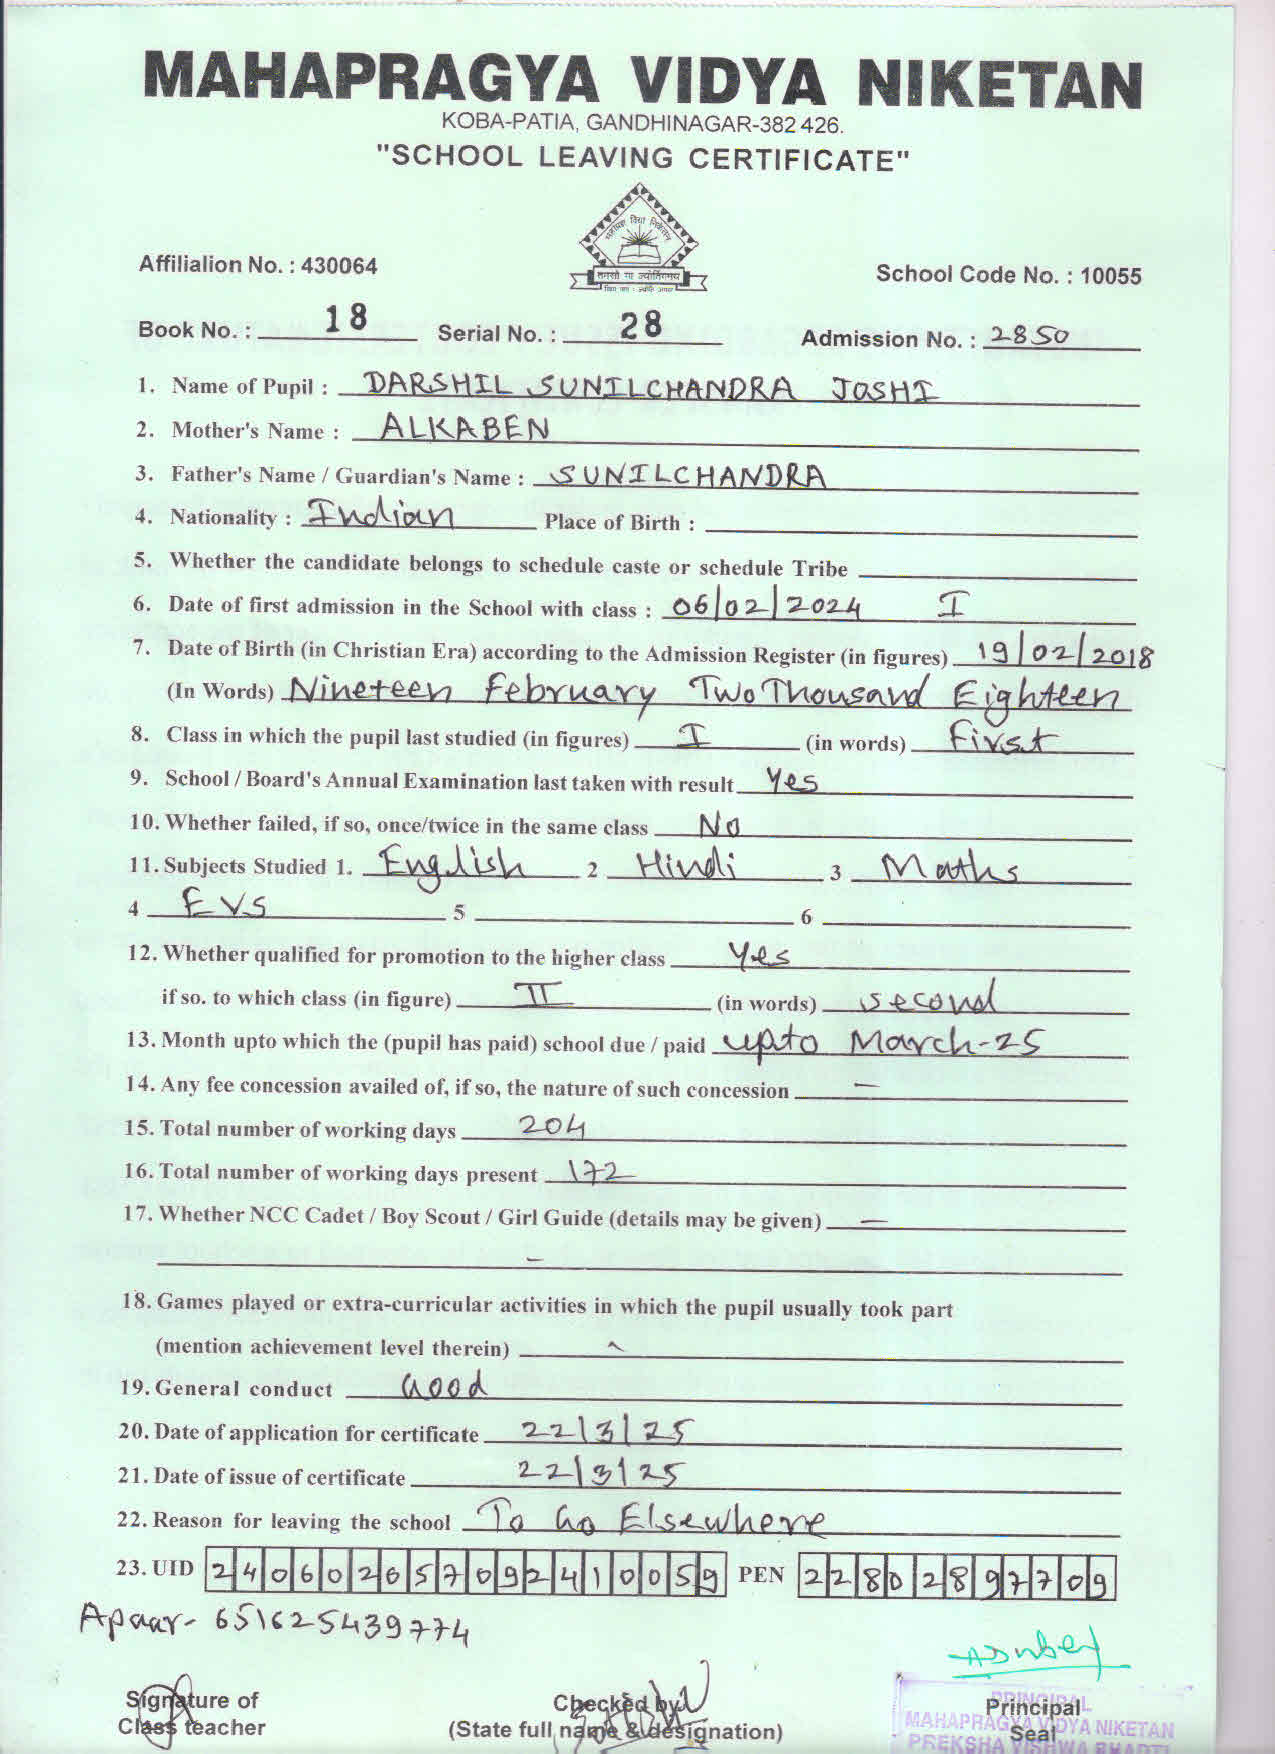 MAHAPRAGYA VIDYA NIKETAN
KOBA-PATIA, GANDHINAGAR-382 426.
"SCHOOL LEAVING CERTIFICATE"
महाप्रज्ञ विद्या निकेतन
तमसो मा ज्योतिर्गमय
Affilialion No. : 430064
School Code No. : 10055
Book No. : 18 Serial No. : 28 Admission No. : 2850
1. Name of Pupil : DARSHIL SUNILCHANDRA JOSHI
2. Mother's Name : ALKABEN
3. Father's Name / Guardian's Name : SUNILCHANDRA
4. Nationality : Indian Place of Birth :
5. Whether the candidate belongs to schedule caste or schedule Tribe
6. Date of first admission in the School with class : 06/02/2024 I
7. Date of Birth (in Christian Era) according to the Admission Register (in figures) 19/02/2018
(In Words) Nineteen February Two Thousand Eighteen
8. Class in which the pupil last studied (in figures) I (in words) First
9. School / Board's Annual Examination last taken with result Yes
10. Whether failed, if so, once/twice in the same class No
11. Subjects Studied 1. English 2 Hindi 3 Maths
4 EVS 5 6
12. Whether qualified for promotion to the higher class Yes
if so. to which class (in figure) II (in words) second
13. Month upto which the (pupil has paid) school due / paid upto March-25
14. Any fee concession availed of, if so, the nature of such concession —
15. Total number of working days 204
16. Total number of working days present 172
17. Whether NCC Cadet / Boy Scout / Girl Guide (details may be given) —
—
18. Games played or extra-curricular activities in which the pupil usually took part
(mention achievement level therein)
19. General conduct Good
20. Date of application for certificate 22/3/25
21. Date of issue of certificate 22/3/25
22. Reason for leaving the school To Go Elsewhere
23. UID 240602657092410059 PEN 22802897709
Apaar- 651625439774
Signature of
Class teacher
Checked by
(State full name & designation)
Principal
Seal
PRINCIPAL
MAHAPRAGYA VIDYA NIKETAN
PREKSHA VISHWA BHARTI